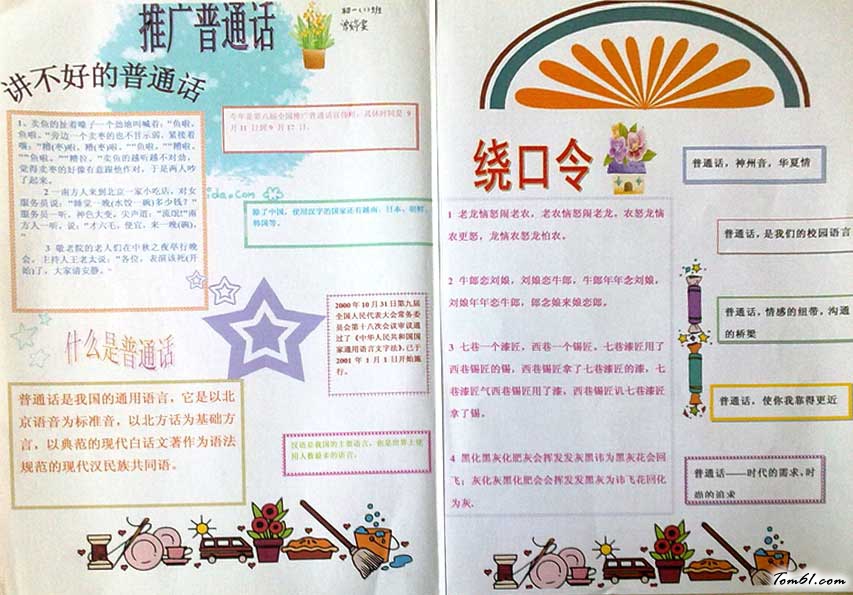 推广普通话
初一(1)班
讲不好的普通话
1、卖鱼的扯着嗓子一个劲地叫喊着,"鱼啦,
鱼啦。"旁边一个卖枣的也不甘示弱,紧接着
嚷:"糟(枣)啦、糟(枣)啦。""鱼啦。""糟啦。"
"鱼啦。""糟拉。"卖鱼的越听越不对劲,
觉得卖枣的好像有意跟他作对,于是两人吵
了起来。
2 一南方人来到北京一家小吃店,对女
服务员说:"睡觉一晚(水饺一碗)多少钱?"
服务员一听,神色大变,尖声道:"流氓!"南
方人一听,说:"才六毛,便宜,来一晚(碗)。"
3 敬老院的老人们在中秋之夜举行晚
会。主持人王老太说:"各位,表演该死(开
始)了,大家请安静。"
今年是第八届全国推广普通话宣传周,具体时间是 9
月 11 日到 9 月 17 日。
除了中国,使用汉字的国家还有越南、日本、朝鲜、
韩国等。
2000 年 10 月 31 日第九届
全国人民代表大会常务委
员会第十八次会议审议通
过了《中华人民共和国国
家通用语言文字法》,已于
2001 年 1 月 1 日开始施
行。
什么是普通话
普通话是我国的通用语言,它是以北
京语音为标准音,以北方话为基础方
言,以典范的现代白话文著作为语法
规范的现代汉民族共同语。
汉语是我国的主要语言,也是世界上使
用人数最多的语言。
绕口令
1 老龙恼怒闹老农,老农恼怒闹老龙,农怒龙恼
农更怒,龙恼农怒龙怕农。
2 牛郎恋刘娘,刘娘恋牛郎,牛郎年年念刘娘,
刘娘年年恋牛郎,郎念娘来娘恋郎。
3 七巷一个漆匠,西巷一个锡匠。七巷漆匠用了
西巷锡匠的锡,西巷锡匠拿了七巷漆匠的漆,七
巷漆匠气西巷锡匠用了漆,西巷锡匠讥七巷漆匠
拿了锡。
4 黑化黑灰化肥灰会挥发发灰黑讳为黑灰花会回
飞;灰化灰黑化肥会会挥发发黑灰为讳飞花回化
为灰.
普通话,神州音,华夏情
普通话,是我们的校园语言
普通话,情感的纽带,沟通
的桥梁
普通话,使你我靠得更近
普通话——时代的需求、时
尚的追求
Tom61.com